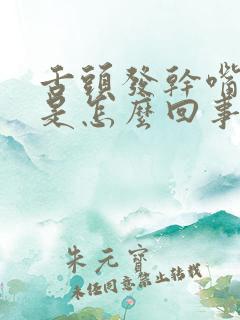 舌頭發幹嘴
是怎麼回事
朱元寶
未經同意禁止轉載